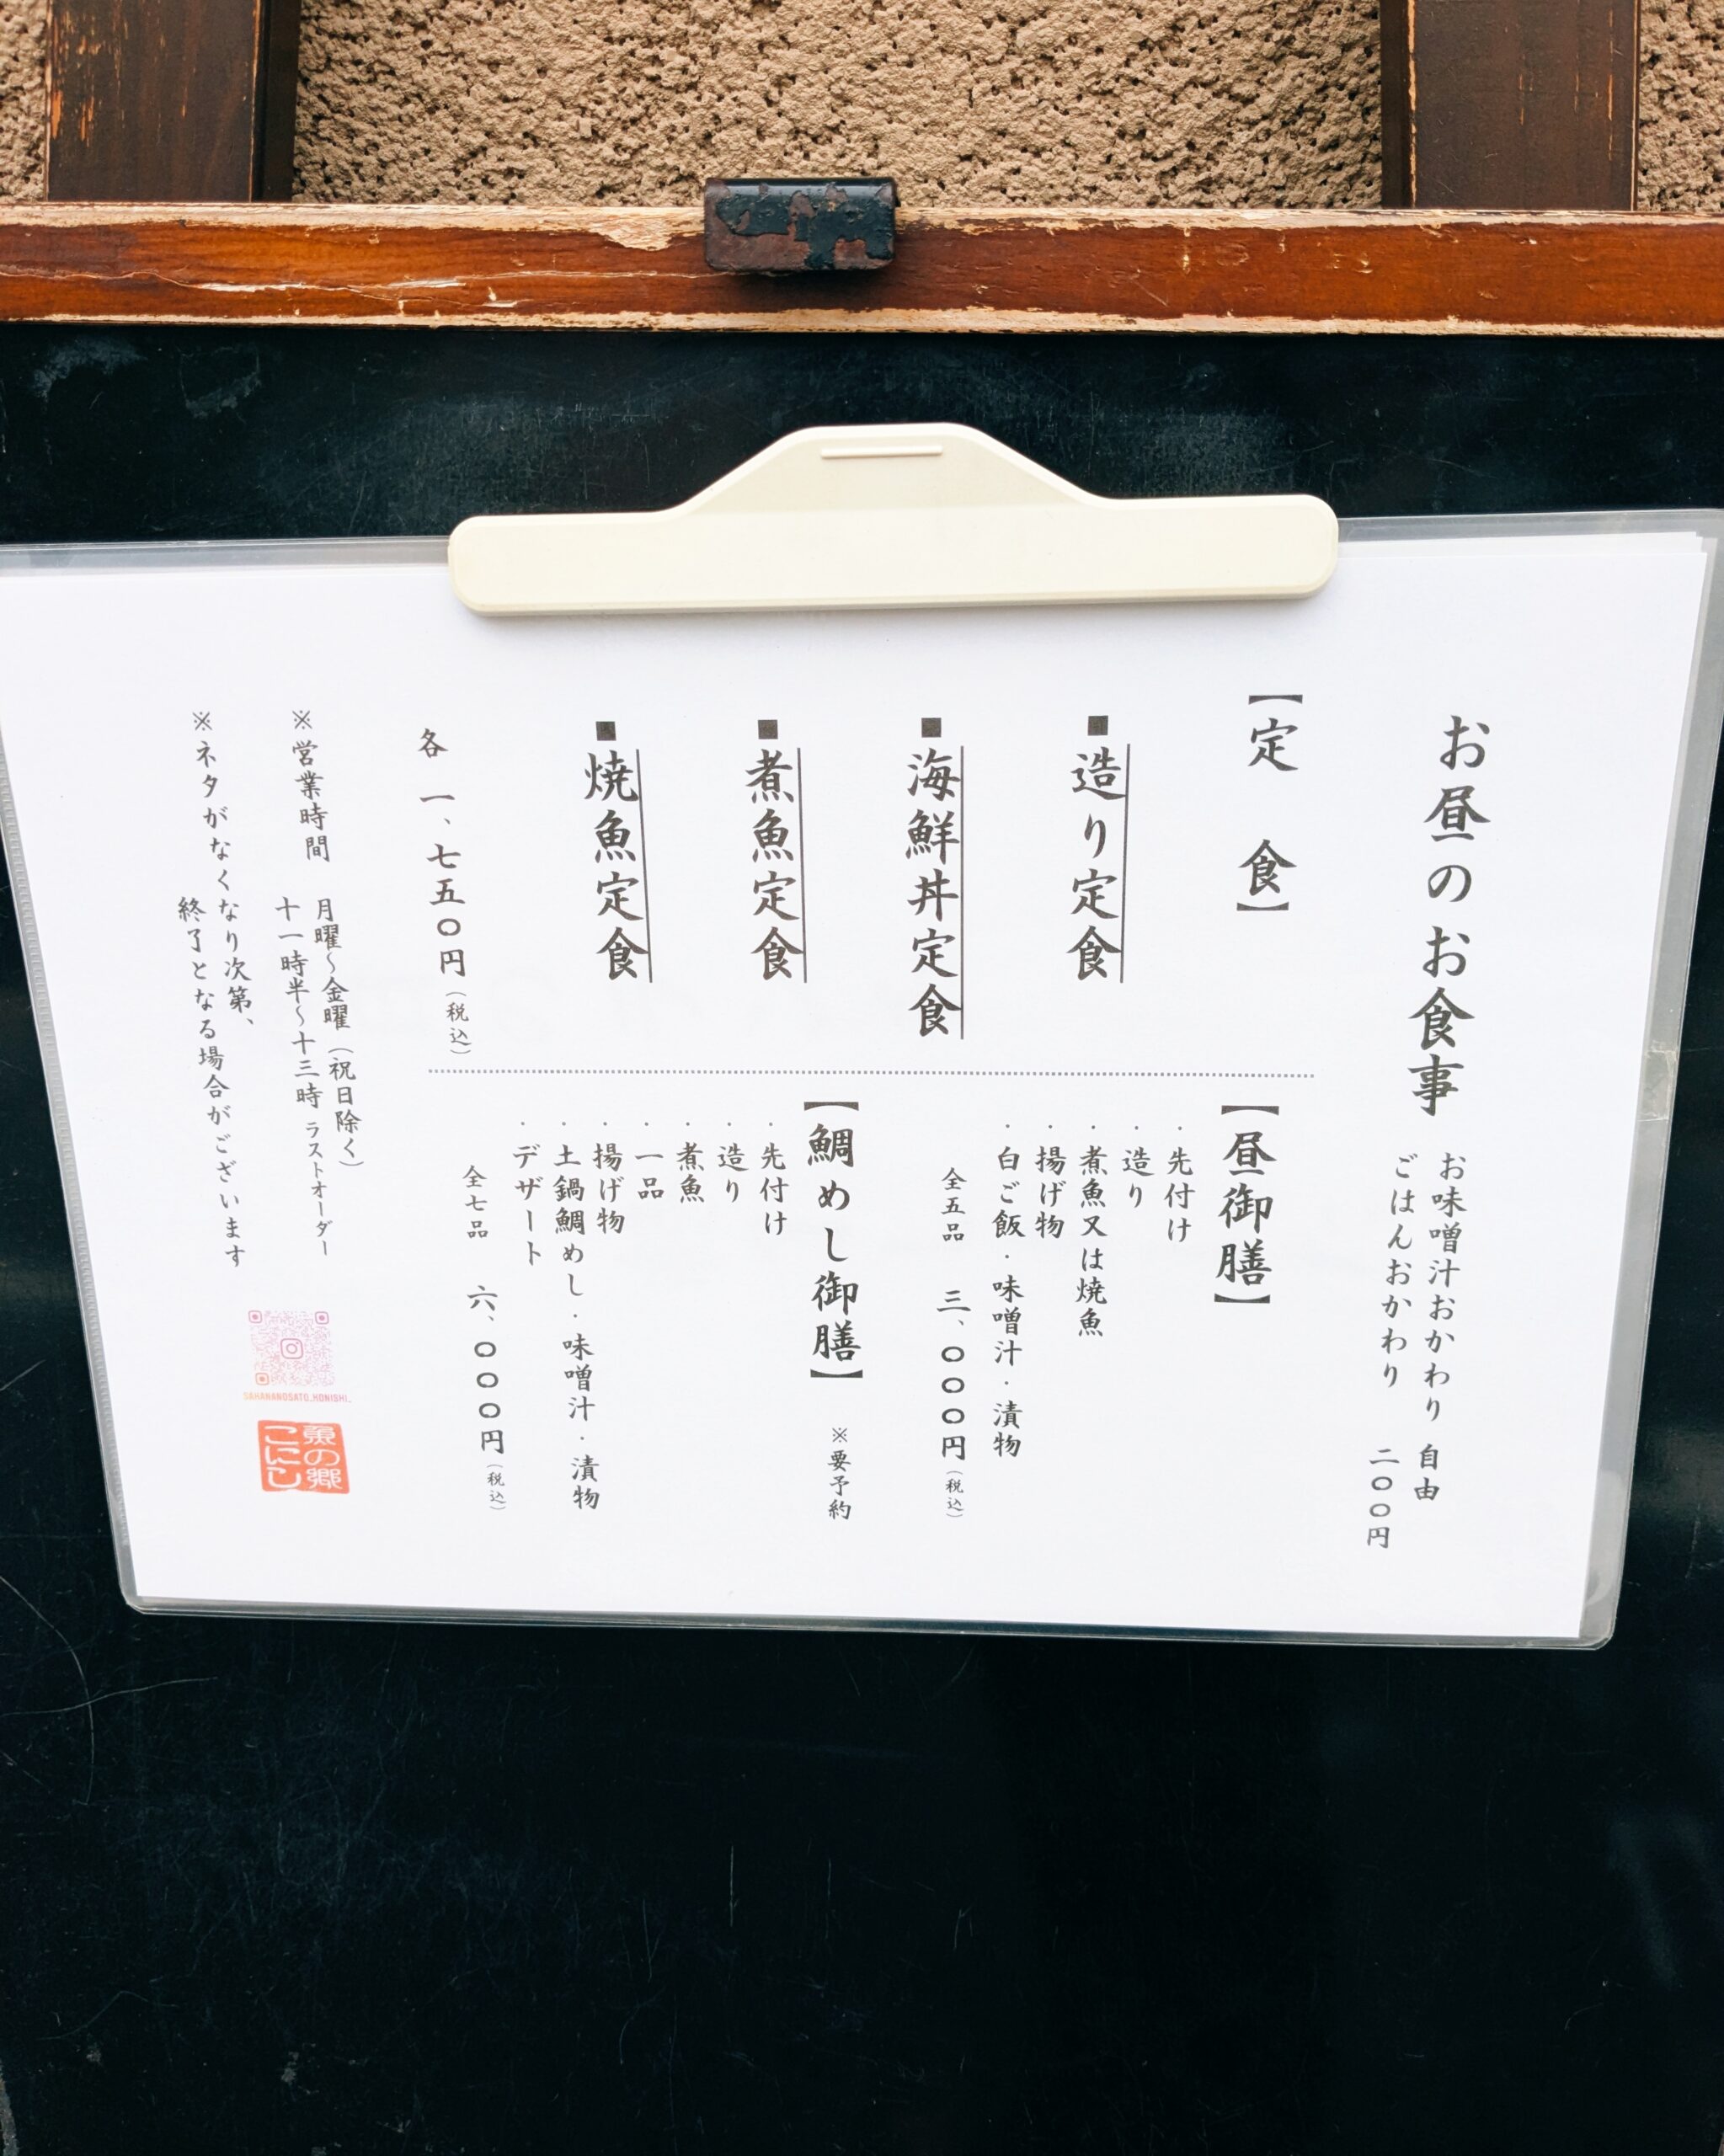 お昼のお食事
お味噌汁おかわり 自由
ごはんおかわり 二〇〇円
【定 食】
■造り定食
■海鮮丼定食
■煮魚定食
■焼魚定食
各 一、七五〇円(税込)
【昼御膳】
・先付け
・造り
・煮魚又は焼魚
・揚げ物
・白ご飯・味噌汁・漬物
全五品 三、〇〇〇円(税込)
【鯛めし御膳】 ※要予約
・先付け
・造り
・煮魚
・一品
・揚げ物
・土鍋鯛めし・味噌汁・漬物
・デザート
全七品 六、〇〇〇円(税込)
※営業時間 月曜〜金曜(祝日除く)
十一時半〜十三時 ラストオーダー
※ネタがなくなり次第、
終了となる場合がございます
SAKANANOSATO_KONISHI_
魚の郷
こにし